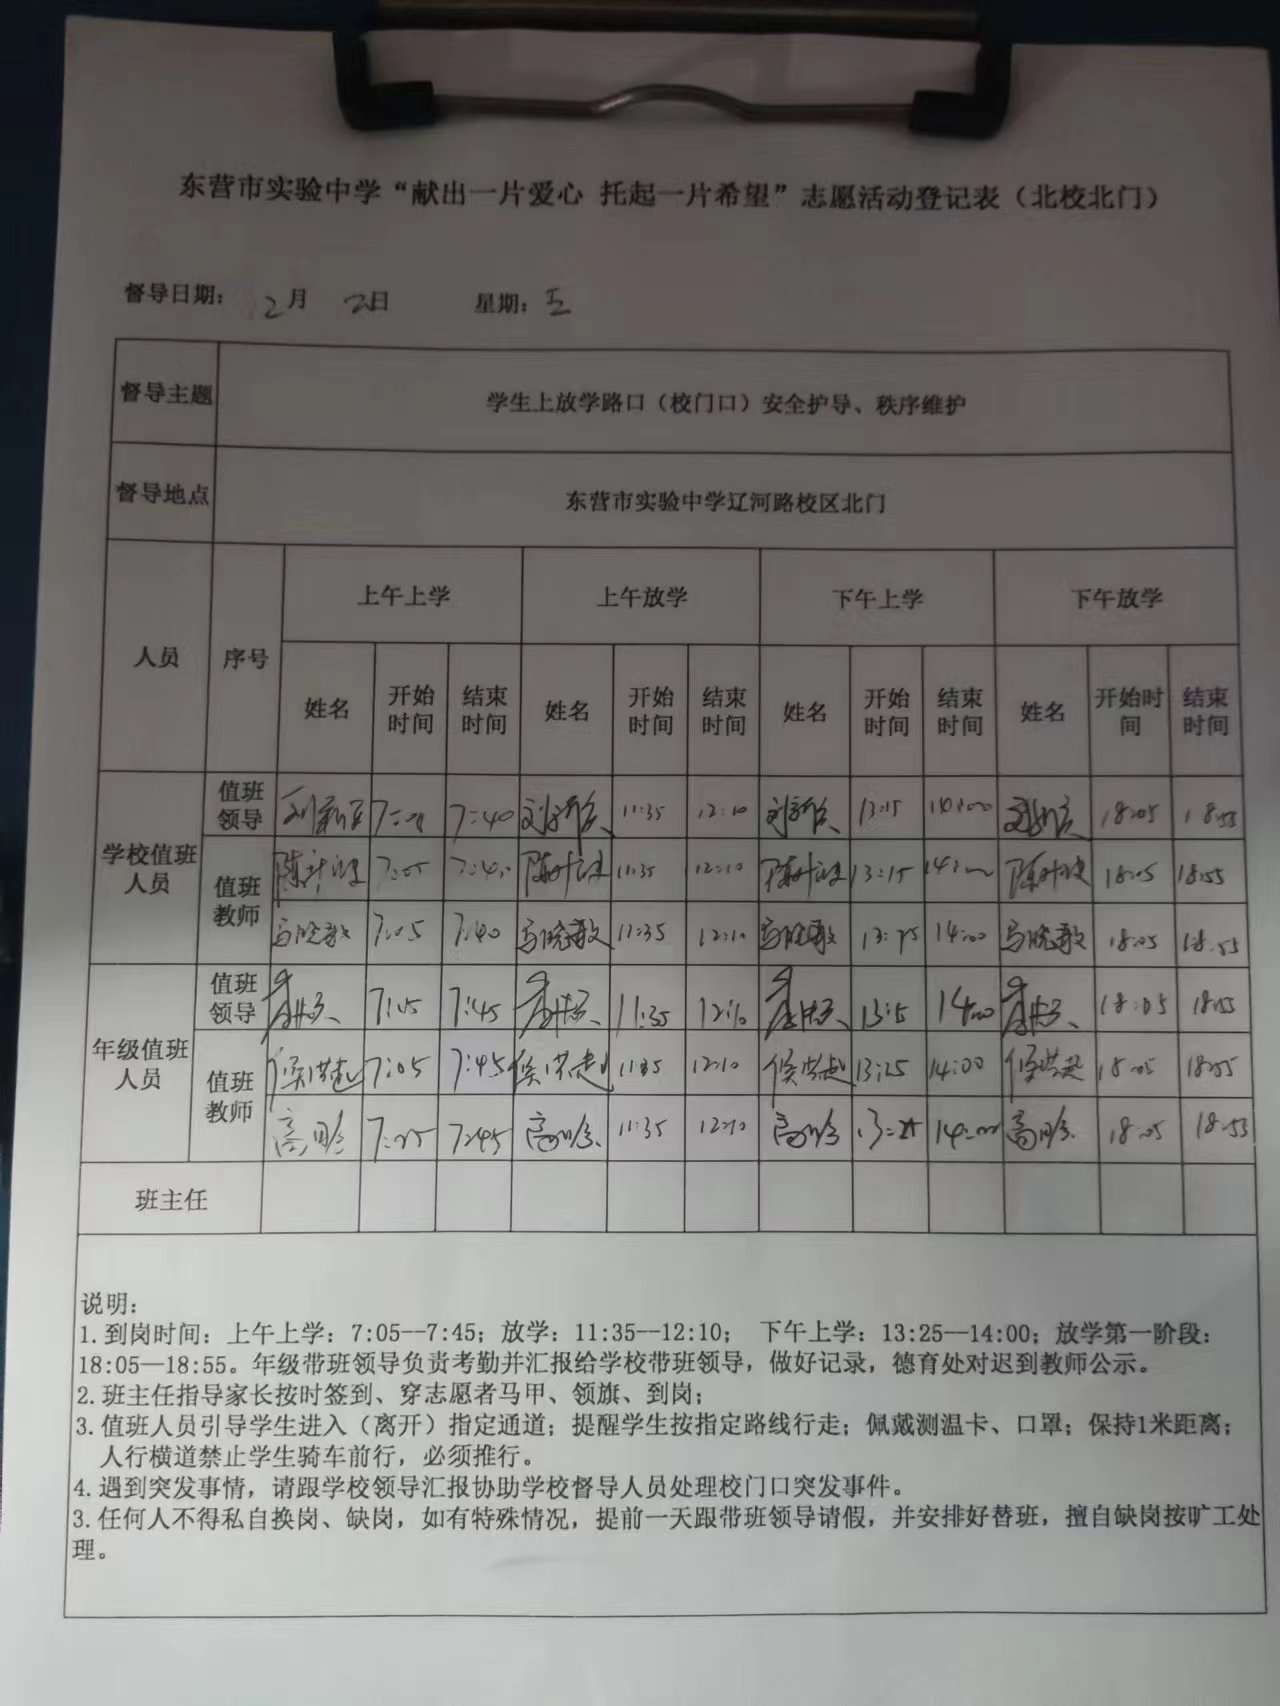 东营市实验中学“献出一片爱心 托起一片希望”志愿活动登记表（北校北门）
督导日期： 12月 2日 星期：五
督导主题 学生上放学路口（校门口）安全护导、秩序维护
督导地点 东营市实验中学辽河路校区北门
人员 序号 上午上学 上午放学 下午上学 下午放学
姓名 开始时间 结束时间 姓名 开始时间 结束时间 姓名 开始时间 结束时间 姓名 开始时间 结束时间
学校值班人员 值班领导 7:40 11:35 12:10 13:15 14:00 18:05 18:55
值班教师 7:05 7:40 11:35 12:10 13:15 14:00 18:05 18:55
马晓敏 7:05 7:40 马晓敏 11:35 12:10 马晓敏 14:00 马晓敏 18:05 18:55
年级值班人员 值班领导 7:05 7:45 11:35 12:10 13:15 14:00 18:05 18:55
值班教师 侯洪起 7:05 7:45 侯洪起 11:35 12:10 侯洪起 13:25 14:00 侯洪起 18:05 18:55
高晗 7:45 高晗 11:35 12:10 高晗 13:25 14:00 高晗 18:05 18:55
班主任
说明：
1.到岗时间：上午上学：7:05--7:45；放学：11:35--12:10； 下午上学：13:25--14:00；放学第一阶段：
18:05—18:55。年级带班领导负责考勤并汇报给学校带班领导，做好记录，德育处对迟到教师公示。
2.班主任指导家长按时签到、穿志愿者马甲、领旗、到岗；
3.值班人员引导学生进入（离开）指定通道；提醒学生按指定路线行走；佩戴测温卡、口罩；保持1米距离；
人行横道禁止学生骑车前行，必须推行。
4.遇到突发事情，请跟学校领导汇报协助学校督导人员处理校门口突发事件。
3.任何人不得私自换岗、缺岗，如有特殊情况，提前一天跟带班领导请假，并安排好替班，擅自缺岗按旷工处
理。